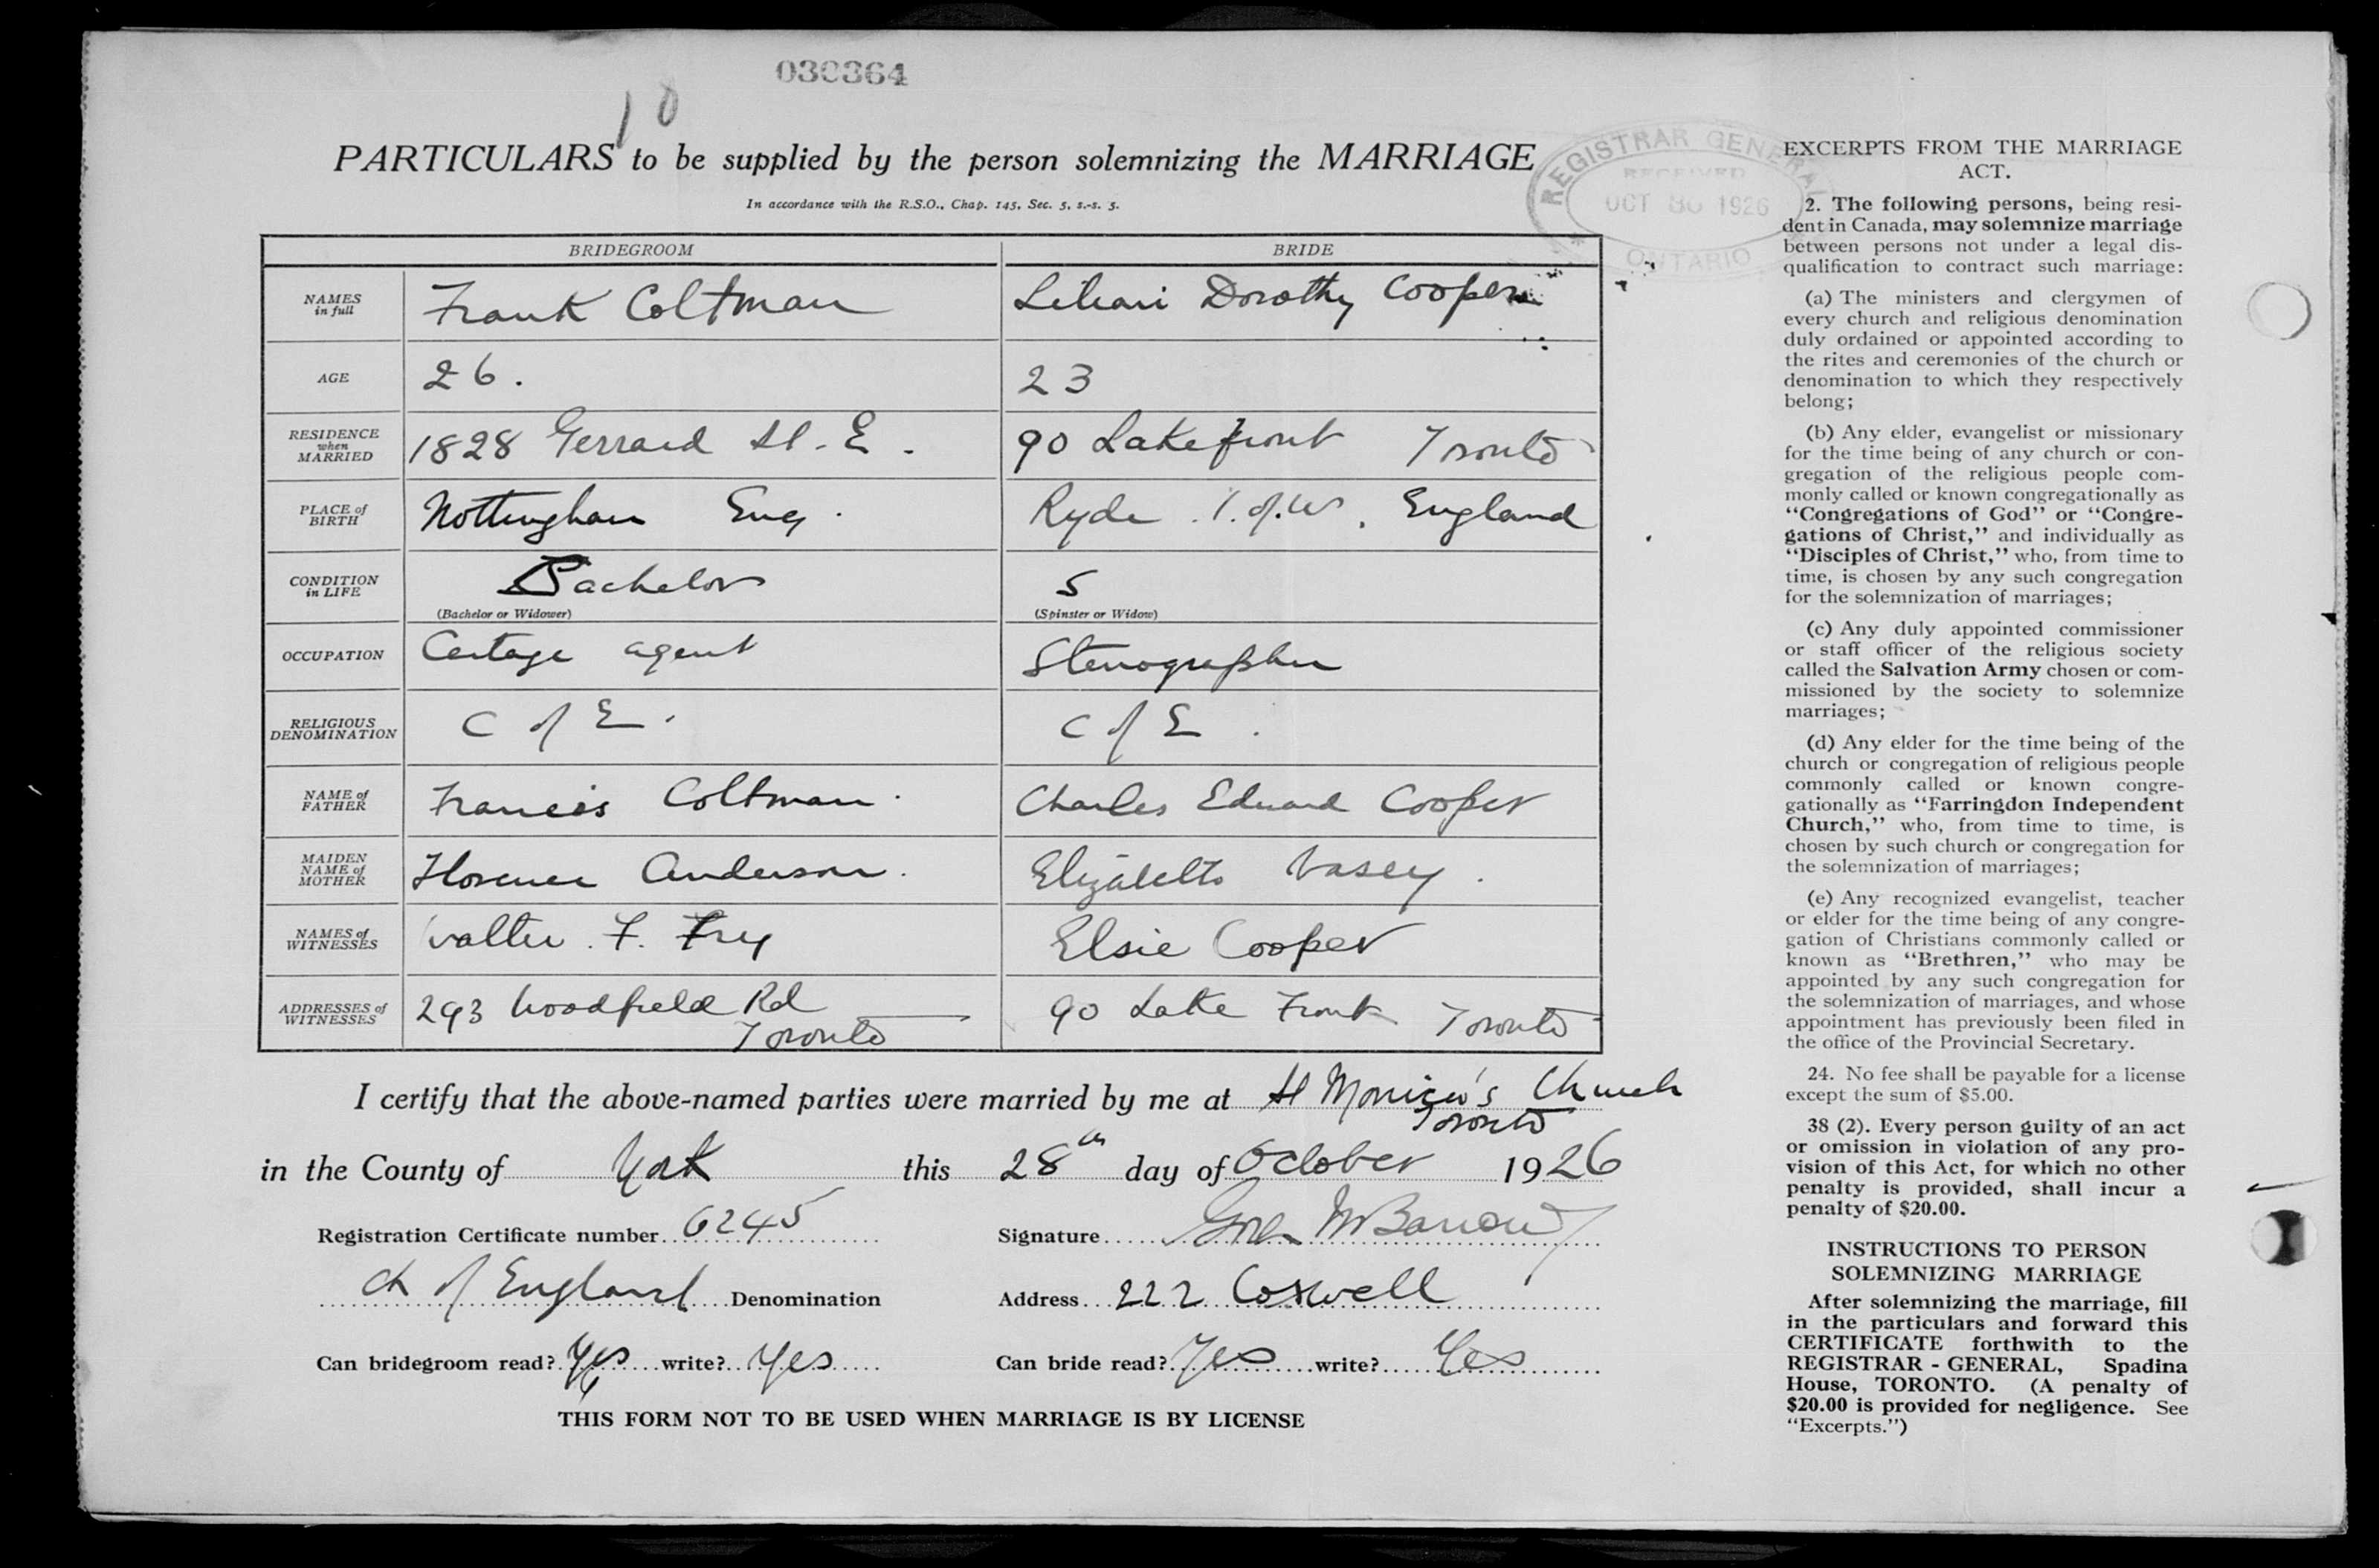 030364
10
PARTICULARS to be supplied by the person solemnizing the MARRIAGE
In accordance with the R.S.O., Chap. 145, Sec. 5, s.-s. 5.
REGISTRAR GENERAL
RECEIVED
OCT 30 1926
ONTARIO
BRIDEGROOM BRIDE
NAMES in full Frank Coltman Lilian Dorothy Cooper
AGE 26. 23
RESIDENCE when MARRIED 1828 Gerrard St. E. 90 Lakefront Toronto
PLACE of BIRTH Nottingham Eng. Ryde I. of W. England
CONDITION in LIFE Bachelor S
(Bachelor or Widower) (Spinster or Widow)
OCCUPATION Cartage agent Stenographer
RELIGIOUS DENOMINATION C of E. C of E.
NAME of FATHER Francis Coltman. Charles Edward Cooper
MAIDEN NAME of MOTHER Florence Anderson. Elizabeth Vasey.
NAMES of WITNESSES Walter F. Fry Elsie Cooper
ADDRESSES of WITNESSES 293 Woodfield Rd Toronto 90 Lake Front Toronto
I certify that the above-named parties were married by me at St Monica's Church
Toronto
in the County of York this 28th day of October 1926
Registration Certificate number 6245 Signature
Ch of England Denomination Address 222 Coxwell
Can bridegroom read? Yes write? Yes Can bride read? Yes write? Yes
THIS FORM NOT TO BE USED WHEN MARRIAGE IS BY LICENSE
EXCERPTS FROM THE MARRIAGE
ACT.
2. The following persons, being resi-
dent in Canada, may solemnize marriage
between persons not under a legal dis-
qualification to contract such marriage:
(a) The ministers and clergymen of
every church and religious denomination
duly ordained or appointed according to
the rites and ceremonies of the church or
denomination to which they respectively
belong;
(b) Any elder, evangelist or missionary
for the time being of any church or con-
gregation of the religious people com-
monly called or known congregationally as
"Congregations of God" or "Congre-
gations of Christ," and individually as
"Disciples of Christ," who, from time to
time, is chosen by any such congregation
for the solemnization of marriages;
(c) Any duly appointed commissioner
or staff officer of the religious society
called the Salvation Army chosen or com-
missioned by the society to solemnize
marriages;
(d) Any elder for the time being of the
church or congregation of religious people
commonly called or known congre-
gationally as "Farringdon Independent
Church," who, from time to time, is
chosen by such church or congregation for
the solemnization of marriages;
(e) Any recognized evangelist, teacher
or elder for the time being of any congre-
gation of Christians commonly called or
known as "Brethren," who may be
appointed by any such congregation for
the solemnization of marriages, and whose
appointment has previously been filed in
the office of the Provincial Secretary.
24. No fee shall be payable for a license
except the sum of $5.00.
38 (2). Every person guilty of an act
or omission in violation of any pro-
vision of this Act, for which no other
penalty is provided, shall incur a
penalty of $20.00.
INSTRUCTIONS TO PERSON
SOLEMNIZING MARRIAGE
After solemnizing the marriage, fill
in the particulars and forward this
CERTIFICATE forthwith to the
REGISTRAR - GENERAL, Spadina
House, TORONTO. (A penalty of
$20.00 is provided for negligence. See
"Excerpts.")